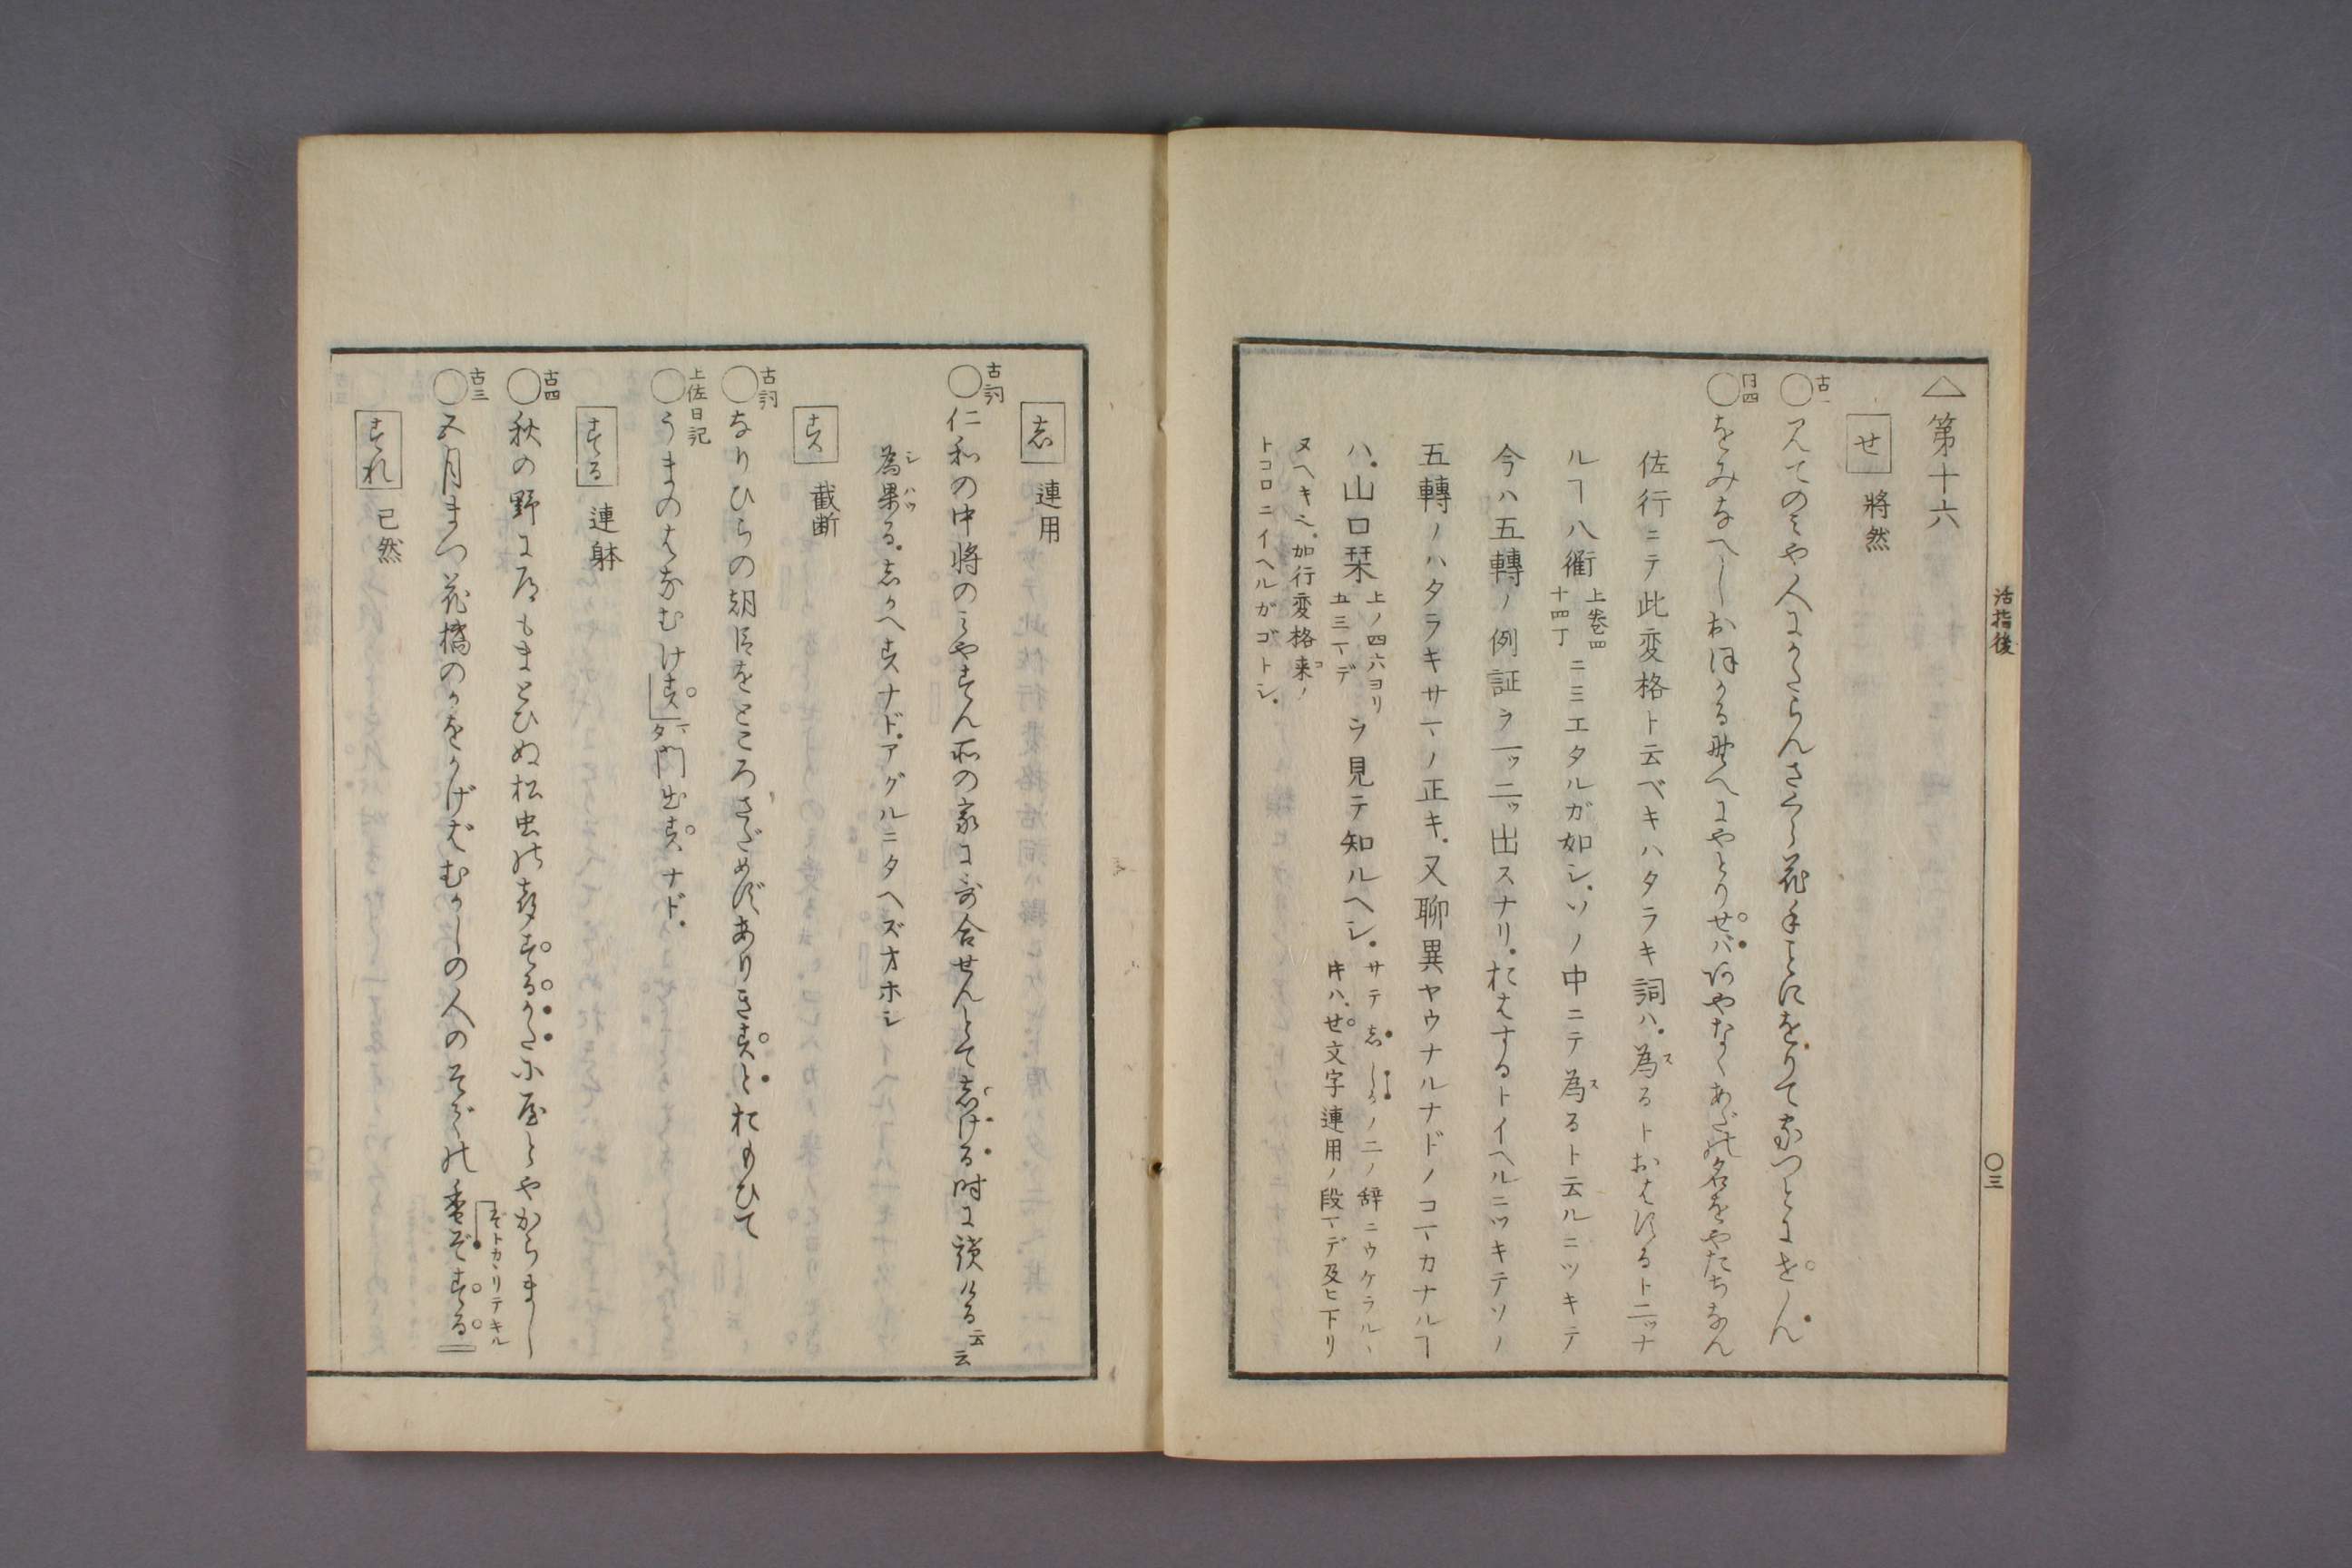 活指後
〇三
△第十六
せ 將然
古一
○見てのみや人にかたらんさくら花手ことにをりて家つとにせん
同四
○をみなへしおほかる野へにやとりせバあやなくあだの名をやたちなん
佐行ニテ此変格ト云ベキハタラキ詞ハ。為るトおはするト二ッナ
ルヿ八衢上巻四十四丁ニミエタルガ如シ。ソノ中ニテ為るト云ルニツキテ
今ハ五轉ノ例証ヲ一ッ二ッ出スナリ。おはするトイヘルニツキテソノ
五轉ノハタラキサマノ正キ。又聊異ヤウナルナドノコマカナルヿ
ハ。山口栞上ノ四六ヨリ五三マデヲ見テ知ルヘシ。サテ志しかノ二ノ辞ニウケラルヽ
キハ。せ文字連用ノ段マデ及ヒ下リ
ヌヘキ之。加行変格来ノ
トコロニイヘルガゴトシ。
志 連用
古詞
○仁和の中將のみやすん所の家に哥合せんとて志ける時によみける云云
為果る。志かへすナド。アグルニタヘズオホシ
す 截断
古詞
○なりひらの朝臣をところさだめずありきすとおもひて
土佐日記
○うまのはなむけす 門出すナド。
する 連躰
古四
○秋の野に道もまとひぬ松虫の声するかたに宿やからまし
古三
○五月まつ花橘のかをかげばむかしの人のそでの香ぞする
ぞトカヽリテキル
すれ 已然